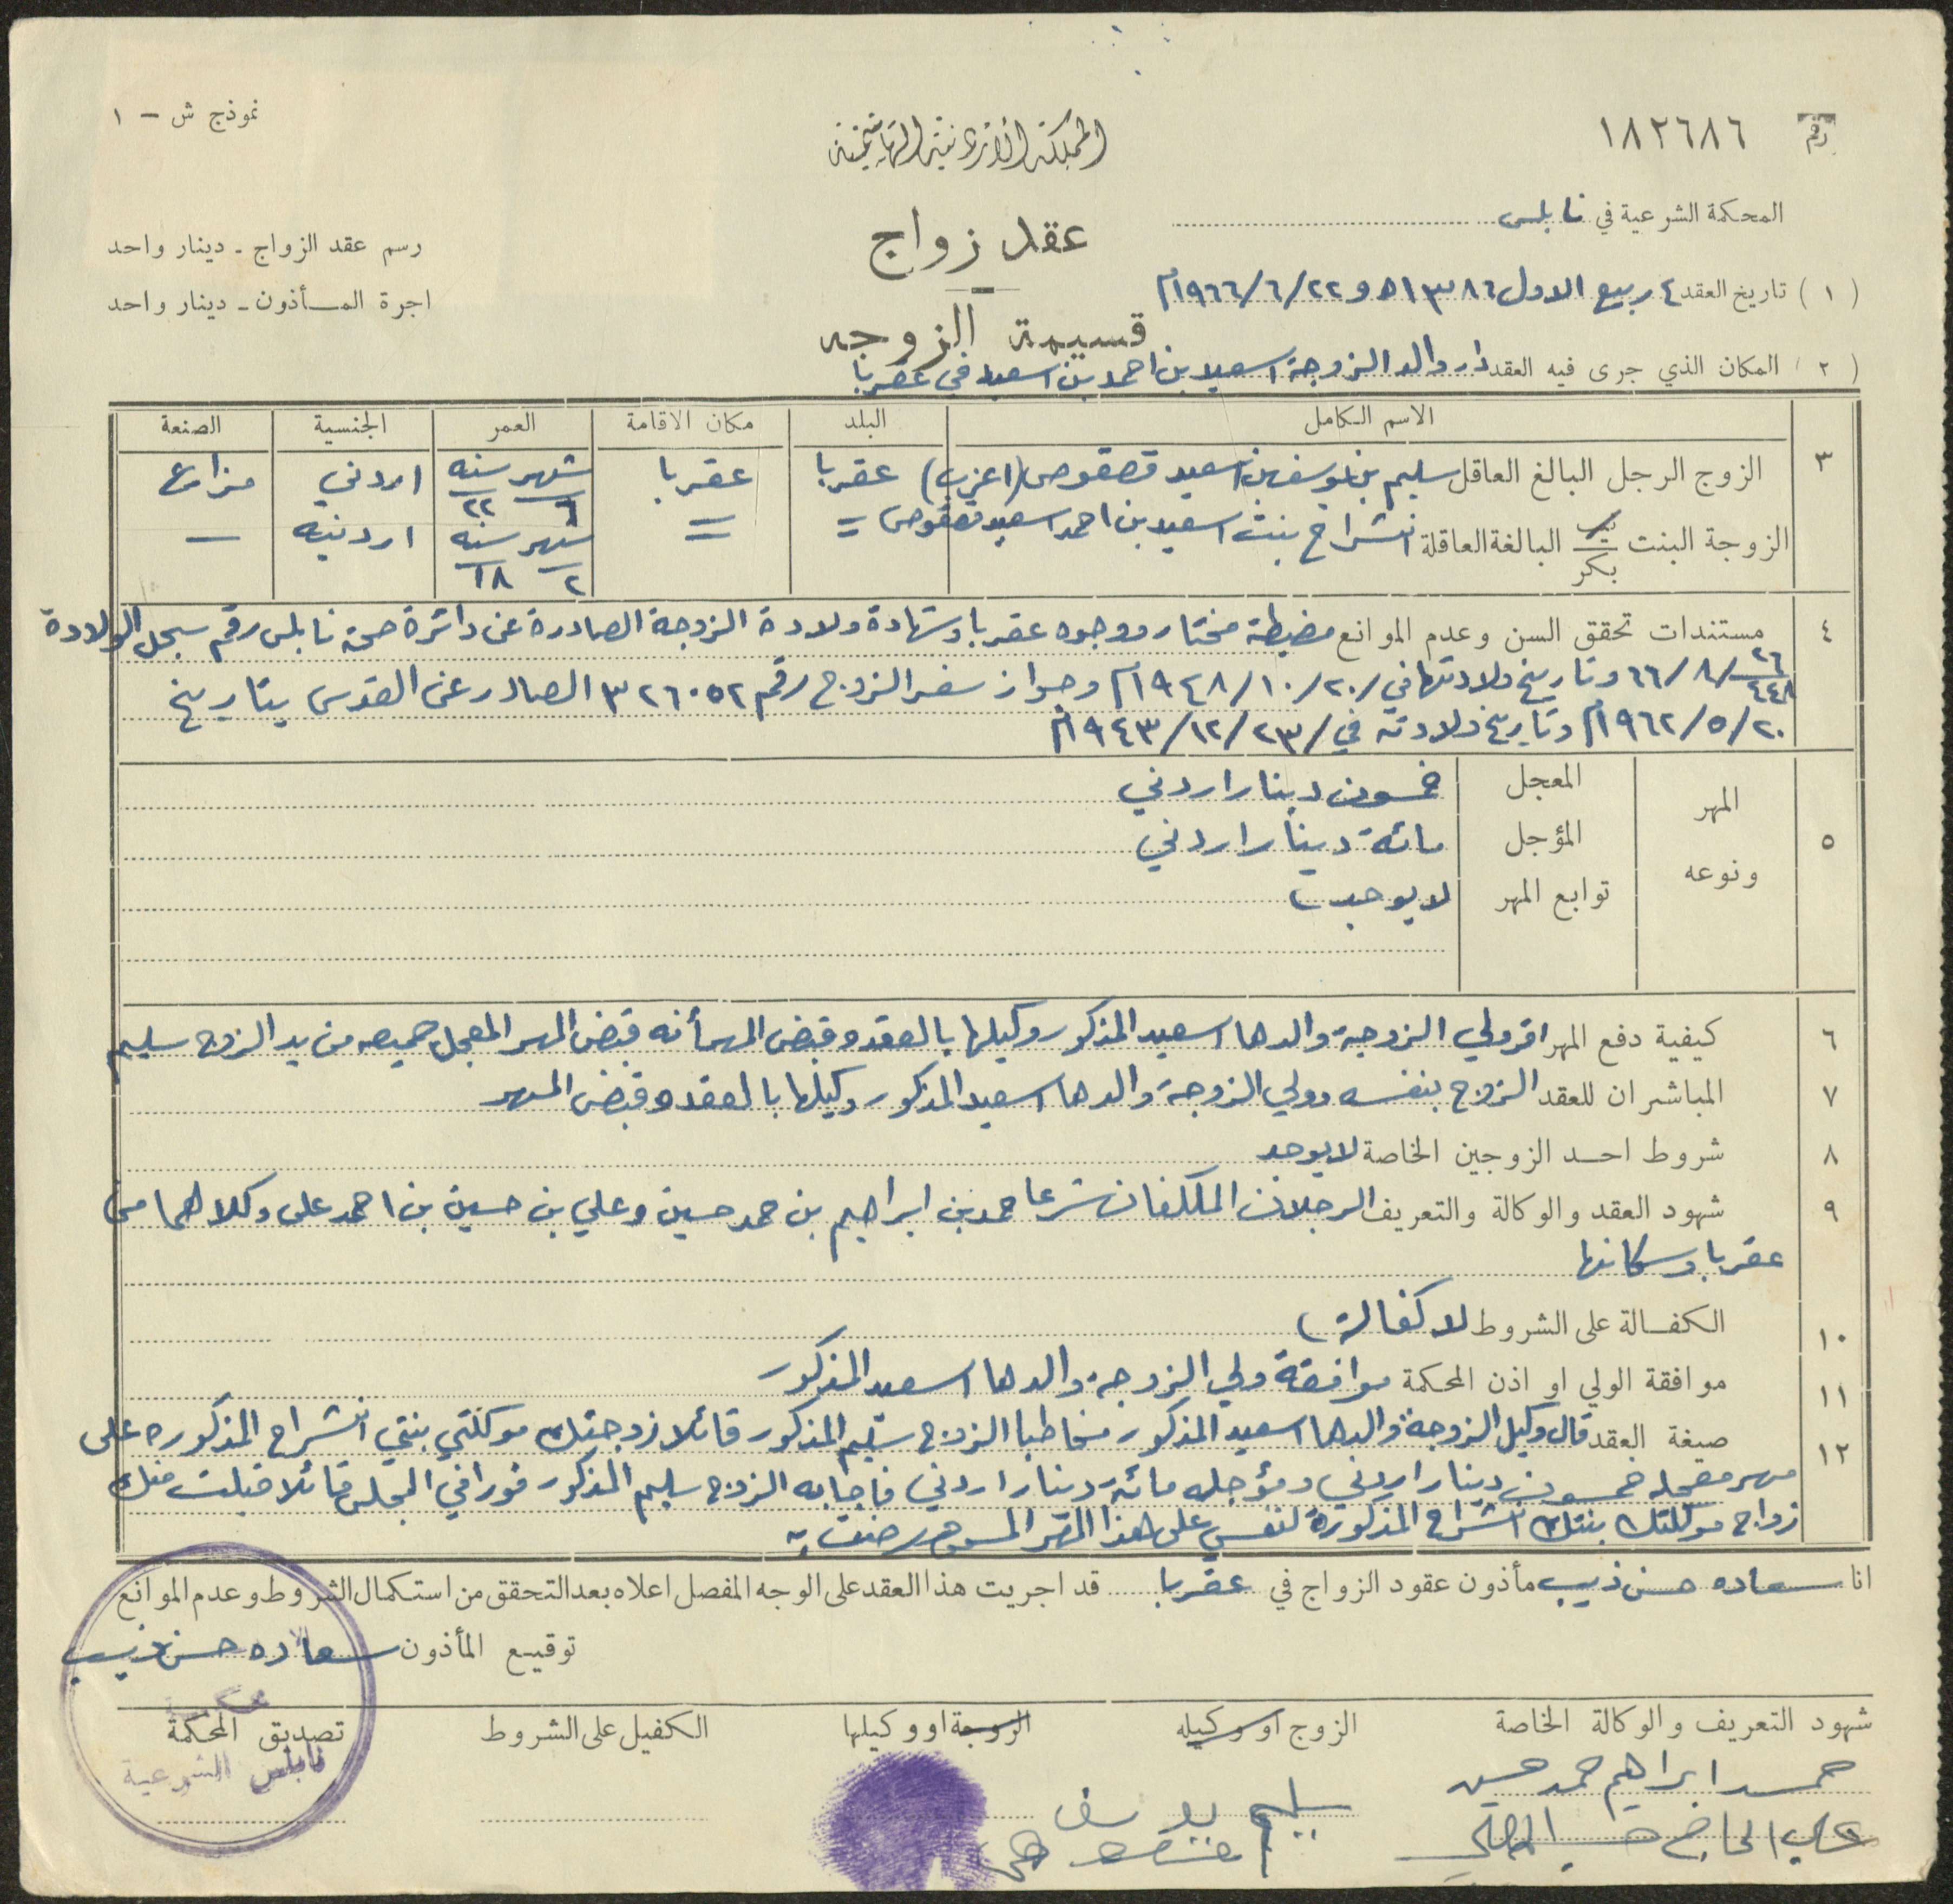 رقم ١٨٢٦٨٦
نموذج ش - ١
المملكة الأردنية الهاشمية
المحكمة الشرعية في نابلس
عقد زواج
رسم عقد الزواج - دينار واحد
(١) تاريخ العقد ٤ ربيع الاول ١٣٨٦ه و ٢٢/٦/١٩٦٦م
اجرة المأذون - دينار واحد
قسيمة الزوجه
(٢) المكان الذي جرى فيه العقد دار والد الزوجة اسعيد بن احمد بن اسعيد في عقربا
الاسم الكامل البلد مكان الاقامة العمر الجنسية الصنعة
٣ الزوج الرجل البالغ العاقل سليم بن يوسف بن اسعيد قصقوص (اعزب) عقربا عقربا شهر ٦ سنه ٢٢ اردني مزارع
الزوجة البنت ثيب بكر البالغة العاقلة انشراح بنت اسعيد بن احمد اسعيد قصقوص = = شهر ٢ سنه ١٨ اردنيه —
٤ مستندات تحقق السن وعدم الموانع مضبطة مختار ووجوه عقربا وشهادة ولادة الزوجة الصادرة عن دائرة صحة نابلس رقم سجل الولادة
٢٦/٤٤٨/٨/٦٦ وتاريخ ولادتها في ٢٠/١٠/١٩٤٨م وجواز سفر الزوج رقم ٣٢٦٠٥٢ الصادر عن القدس بتاريخ
٢٠/٥/١٩٦٢م وتاريخ ولادته في ٢٣/١٢/١٩٤٣م
٥ المهر ونوعه
المعجل خمسون دينار اردني
المؤجل مائة دينار اردني
توابع المهر لا يوجد
٦ كيفية دفع المهر اقر ولي الزوجة والدها اسعيد المذكور وكيلها بالعقد وقبض المهر أنه قبض المهر المعجل جميعه من يد الزوج سليم
٧ المباشران للعقد الزوج بنفسه وولي الزوجة والدها اسعيد المذكور وكيلها بالعقد وقبض المهر
٨ شروط احد الزوجين الخاصة لا يوجد
٩ شهود العقد والوكالة والتعريف الرجلان المكلفان شرعا حمد بن ابراهيم بن حمد حسين وعلي بن حسين بن احمد علي وكلاهما من
عقربا وسكانها
١٠ الكفالة على الشروط لا كفالة
١١ موافقة الولي او اذن المحكمة موافقة ولي الزوجة والدها اسعيد المذكور
١٢ صيغة العقد قال وكيل الزوجة والدها اسعيد المذكور مخاطبا الزوج سليم المذكور قائلا زوجتك موكلتي بنتي انشراح المذكوره على
مهر معجله خمسون دينار اردني ومؤجله مائة دينار اردني فاجابه الزوج سليم المذكور فورا في المجلس قائلا قبلت منك
زواج موكلتك بنتك انشراح المذكورة لنفسي على هذا المهر المسمى ورضيت به
انا سعاده حسن ذيب مأذون عقود الزواج في عقربا قد اجريت هذا العقد على الوجه المفصل اعلاه بعد التحقق من استكمال الشروط وعدم الموانع
توقيع المأذون سعاده حسن ذيب
شهود التعريف والوكالة الخاصة الزوج او وكيله الزوجة او وكيلها الكفيل على الشروط تصديق المحكمة
محكمة نابلس الشرعية
حمد ابراهيم حمد حسين
سليم يوسف